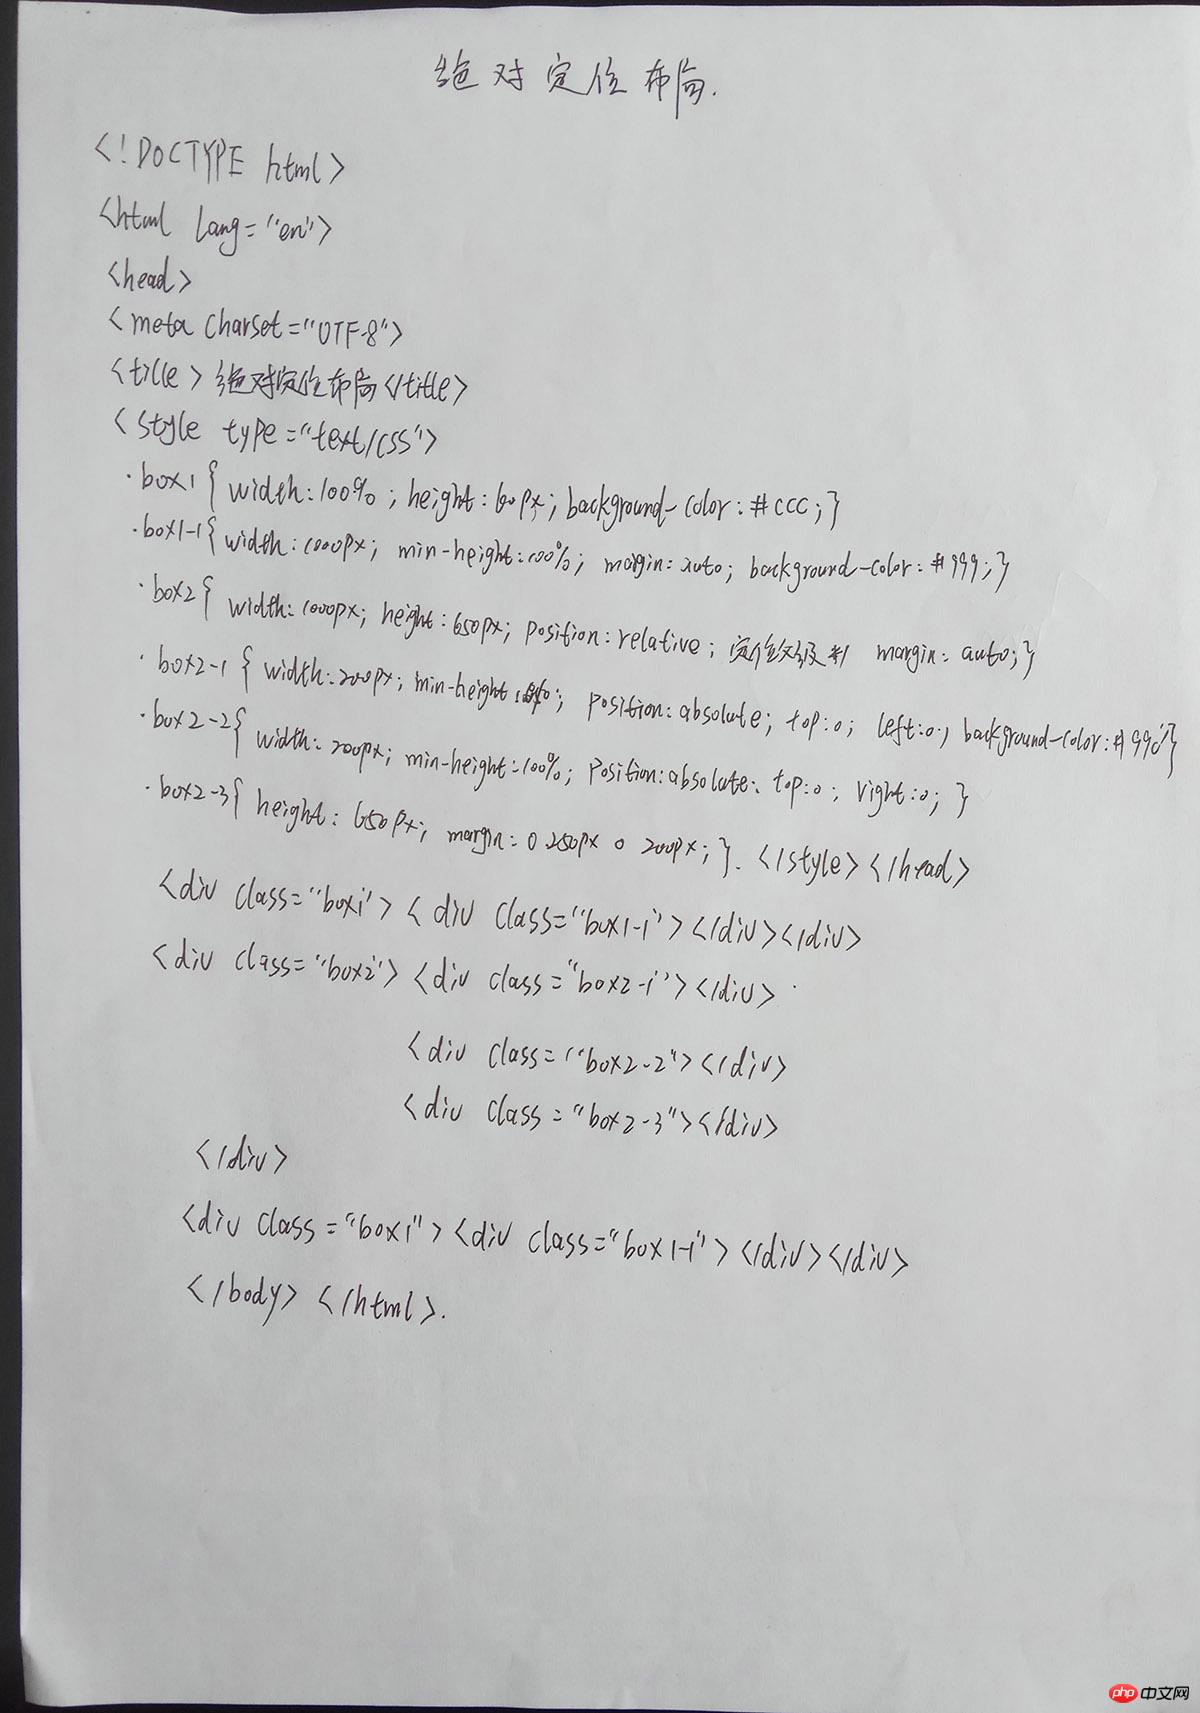 绝对定位布局.
<!DOCTYPE html>
<html lang="en">
<head>
<meta charset="UTF-8">
<title>绝对定位布局</title>
<style type="text/css">
.box1{width:100%;height:60px;background-color:#ccc;}
.box1-1{width:1000px;min-height:100%;margin:auto;background-color:#999;}
.box2{width:1000px;height:650px;position:relative;定位父级*/ margin:auto;}
.box2-1{width:200px;min-height:100%;position:absolute;top:0;left:0;background-color:#99c}
.box2-2{width:200px;min-height:100%;position:absolute;top:0;right:0;}
.box2-3{height:650px;margin:0 250px 0 200px;}.</style></head>
<div class="box1"><div class="box1-1"></div></div>
<div class="box2"><div class="box2-1"></div>
<div class="box2-2"></div>
<div class="box2-3"></div>
</div>
<div class="box1"><div class="box1-1"></div></div>
</body></html>.
php中文网